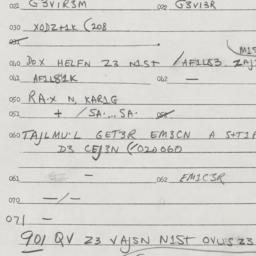 021 G3VIR3M 022 G3VI3R
030 XODZ+1K (208
031
M1S
040 DOX HELFN Z3 N1ST / AF1L83. ZAJ
AF1L81K 042 —
050 RA·X N, KAR1G
051 + /SA·...SA·
060 TAJLMU'L GET3R EM3CN A S+T1F
D3 CEJ3N (/020060
061 — 062 EM1C3R
070 —/—
071 —
901 QV Z3 VAJSN N1ST OVUS Z3